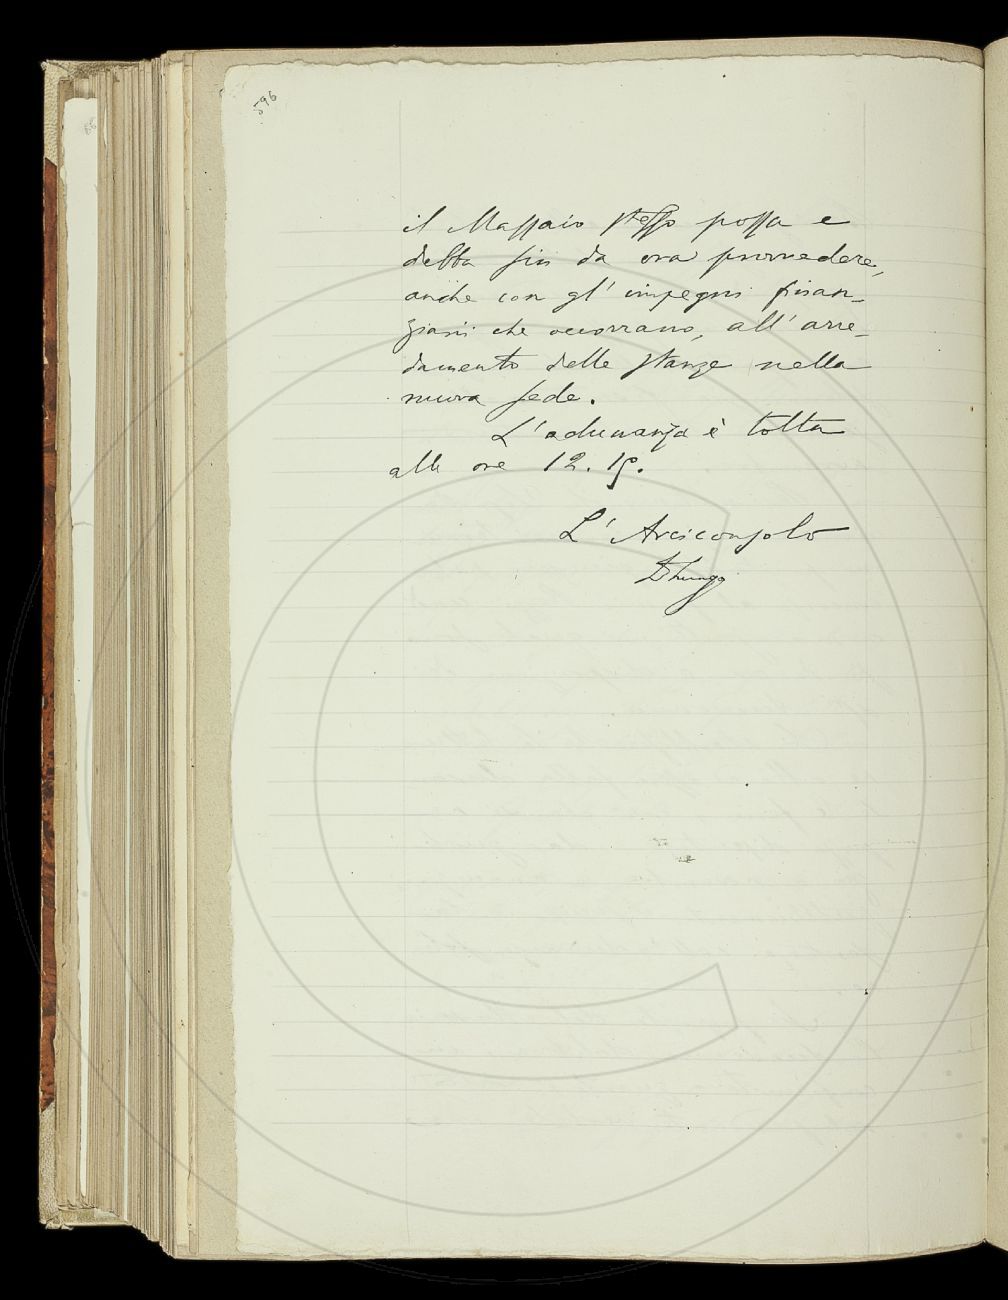 596
il Massaio stesso possa e
debba fin da ora provvedere,
anche con gl' impegni finan-
ziarii che occorrano, all' arre-
damento delle stanze nella
nuova sede.
L' adunanza è tolta
alle ore 12. 15.
L' Arciconsolo